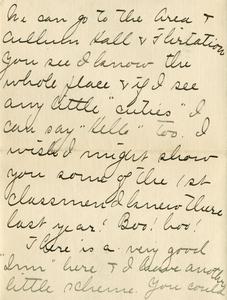 We can go to the Area &
Cullum Hall & Flirtation
You see I know the
whole place & if I see
any little "cuties" I
can say "Hello" too. I
wish I might show
you some of the 1st
classmen I knew there
last year! Boo! hoo!
There is a very good
"Inn" here & I have another
little scheme. You could